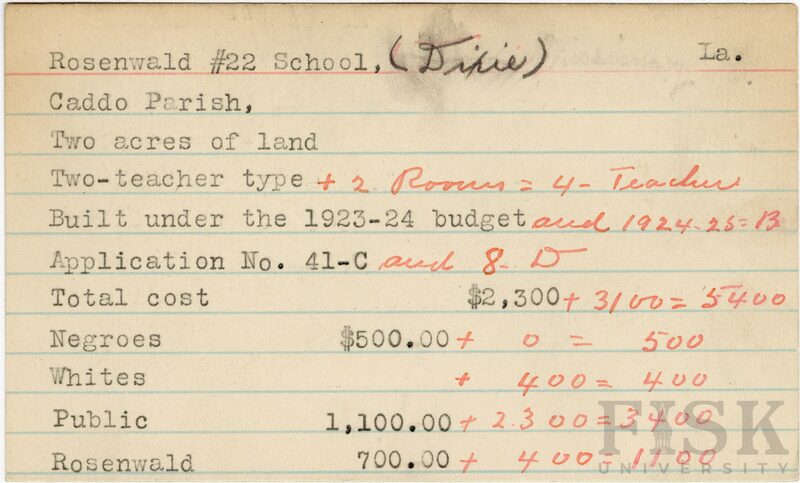 Rosenwald #22 School, (Dixie) La.
Caddo Parish,
Two acres of land
Two-teacher type + 2 Rooms = 4- Teacher
Built under the 1923-24 budget and 1924-25=B
Application No. 41-C and 8-D
Total cost $2,300 + 3100 = 5400
Negroes $500.00 + 0 = 500
Whites + 400 = 400
Public 1,100.00 + 2300 = 3400
Rosenwald 700.00 + 400 = 1100
FISK
UNIVERSITY